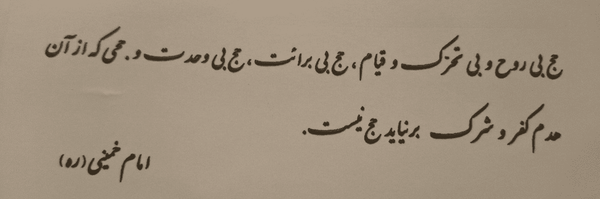 حج بی روح و بی تحرک و قیام، حج بی برائت، حج بی وحدت و حجی که از آن
هدم کفر و شرک برنیاید حج نیست.
امام خمینی (ره)